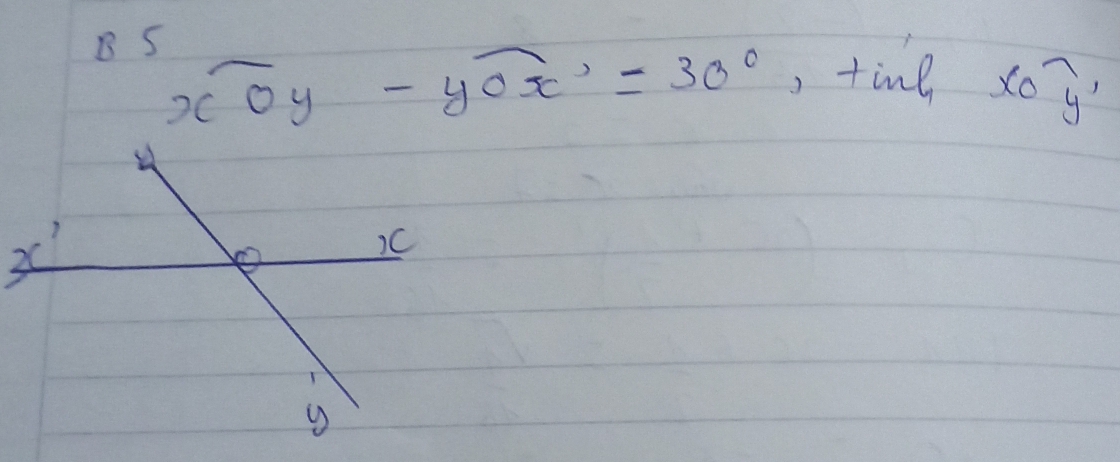 B 5
xOy - yOx' = 30°, tính xOy'
y
x'
O
x
y'